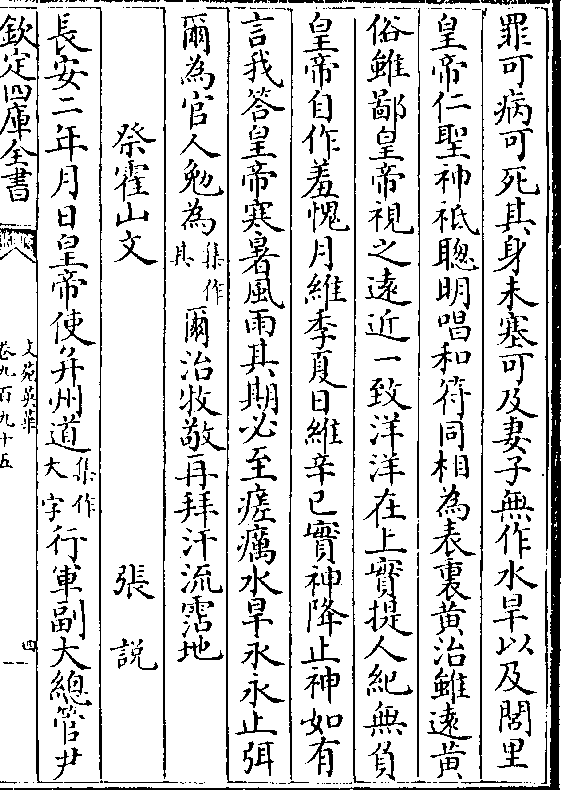 罪可病可死其身未塞可及妻子無作水旱以及閭里
皇帝仁聖神祗聰明唱和符同相為表裏黄治雖遠黄
俗雖鄙皇帝視之遠近一致洋洋在上實提人紀無負
皇帝自作羞愧月維季夏日維辛巳實神降止神如有
言我答皇帝寒暑風雨其期必至瘥癘水旱永永止弭
爾為官人勉為集作其爾治牧敬再拜汗流霑地
祭霍山文 張說
長安二年月日皇帝使并州道集作大字行軍副大總管尹
欽定四庫全書
文苑英華
卷九百九十五
四